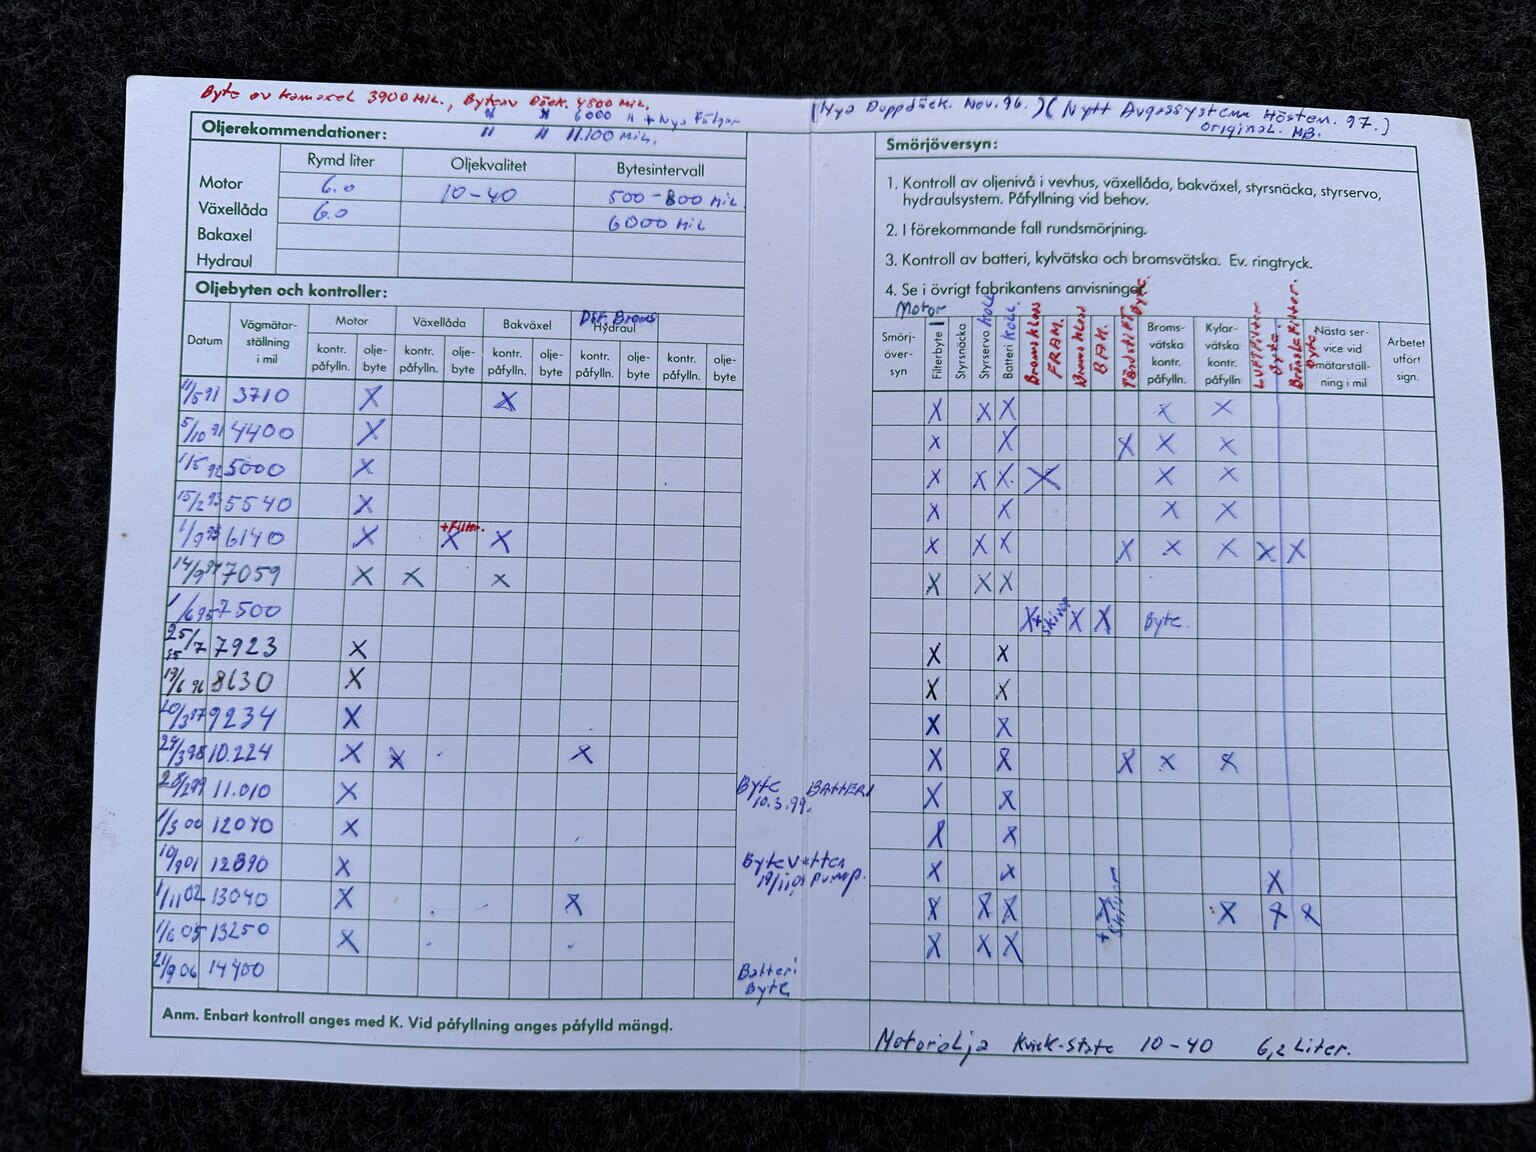 Byte av kamaxel 3900 Mil., Byte av Däck. 4800 Mil.
" " 6000 " + Nya Fälgar
" " 11.100 Mil.
(Nya Dubbdäck. Nov. 96.) (Nytt Avgassystem Hösten. 97.)
original. MB.
Oljerekommendationer:
Rymd liter Oljekvalitet Bytesintervall
Motor 6.0 10-40 500-800 Mil
Växellåda 6.0 6000 Mil
Bakaxel
Hydraul
Oljebyten och kontroller:
Datum Vägmätarställning i mil Motor Växellåda Bakväxel Hydraul
kontr. påfylln. oljebyte kontr. påfylln. oljebyte kontr. påfylln. oljebyte kontr. påfylln. oljebyte kontr. påfylln. oljebyte
11/5 91 3710 X X
5/10 91 4400 X
1/5 92 5000 X
15/2 93 5540 X
1/9 93 6140 X +Filter. X X
14/9 94 7059 X X X
1/6 95 7500
25/7 95 7923 X
19/6 96 8630 X
20/3 97 9234 X
29/3 98 10.224 X X X
28/2 99 11.010 X
1/3 00 12040 X
10/9 01 12890 X
1/11 02 13040 X X
1/6 05 13250 X
21/9 06 14400
Anm. Enbart kontroll anges med K. Vid påfyllning anges påfylld mängd.
Byte BATTERI
10.3.99.
Byte vatten
pump.
Batteri
Byte
Smörjöversyn:
1. Kontroll av oljenivå i vevhus, växellåda, bakväxel, styrsnäcka, styrservo,
hydraulsystem. Påfyllning vid behov.
2. I förekommande fall rundsmörjning.
3. Kontroll av batteri, kylvätska och bromsvätska. Ev. ringtryck.
4. Se i övrigt fabrikantens anvisningar.
Motor
Smörjöversyn Filterbyte Styrsnäcka Styrservo Koll Batteri Koll. Bromskloss FRAM. Bromskloss BAK. Tändstift Byte. Bromsvätska kontr. påfylln. Kylarvätska kontr. påfylln Luftfilter Byte. Bränslefilter. Byte. Nästa service vid mätarställning i mil Arbetet utfört sign.
X X X X X
X X X X X
X X X X X X
X X X X
X X X X X X X X
X X X
X + skivor X X Byte.
X X
X X
X X
X X X X X
X X
X X
X X X
X X X X + skivor X X X
X X X
Motorolja Kvick-State 10-40 6,2 Liter.